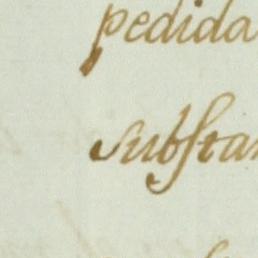 pedida
substan